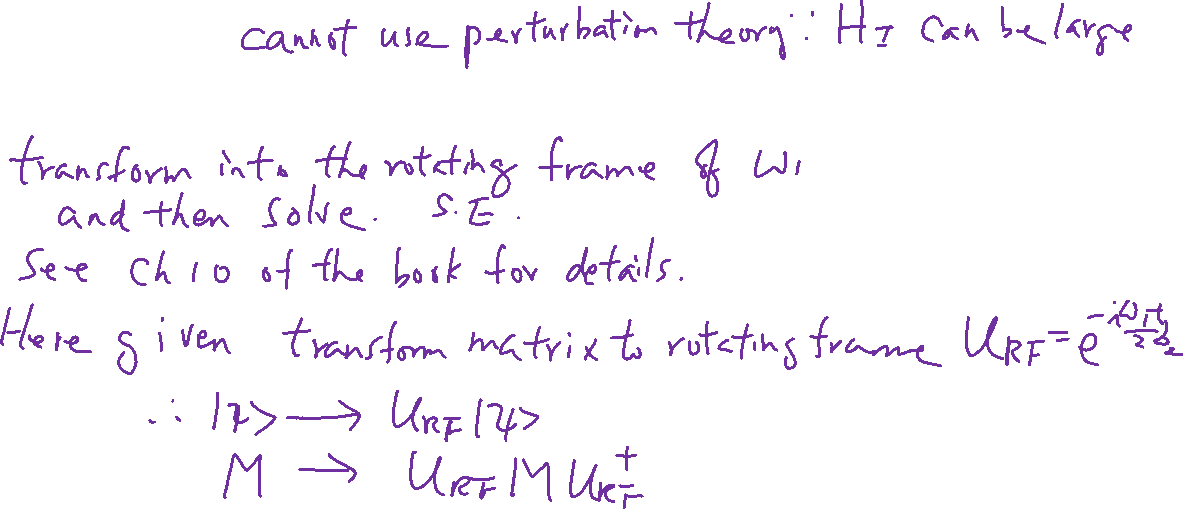 cannot use perturbation theory ∵ H_I can be large
transform into the rotating frame of ω₁
and then solve. S.E.
See Ch 10 of the book for details.
Here given transform matrix to rotating frame U_RF = e^{-i(ω₁t/2)σ_z}
∴ |ψ> → U_RF |ψ>
M → U_RF M U_RF^+